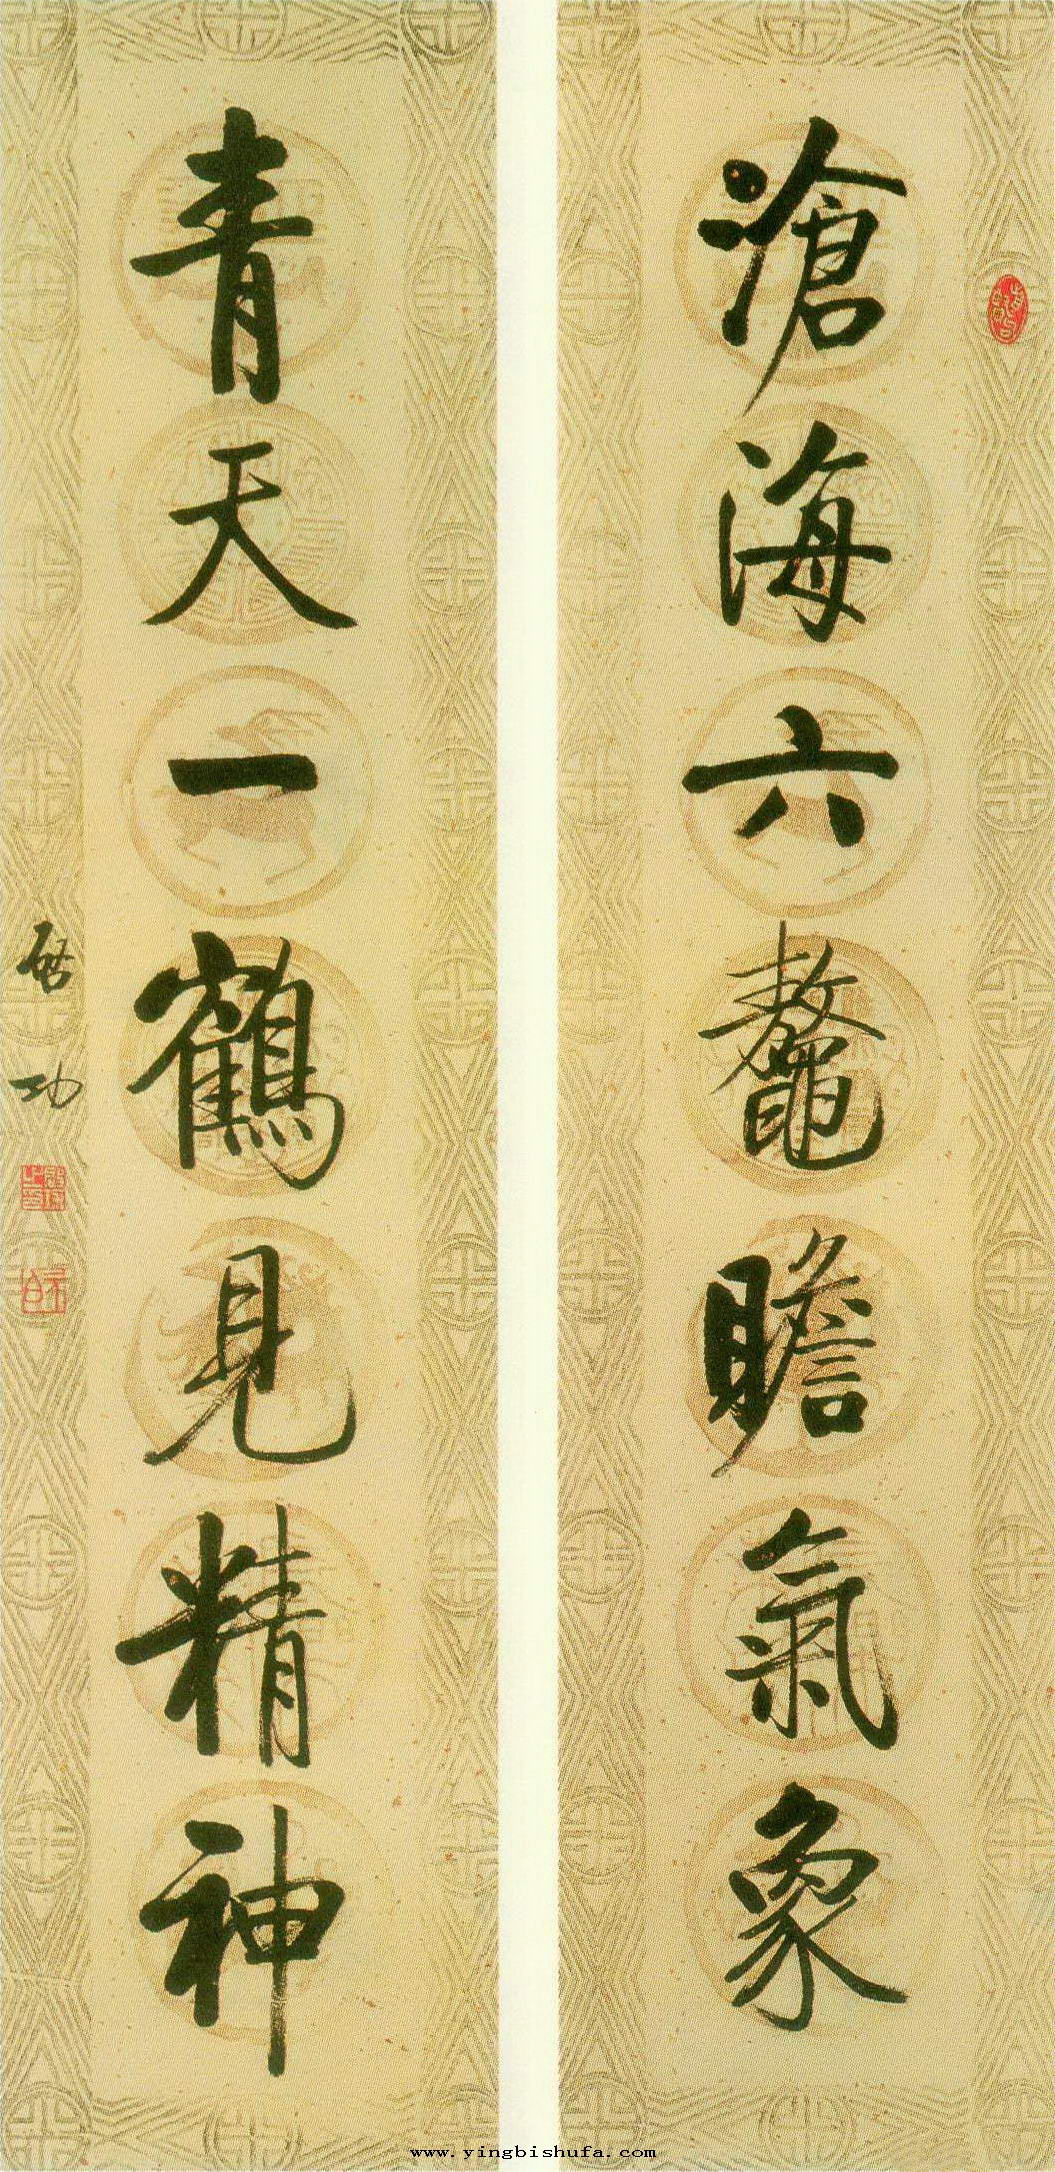 滄海六鼇瞻氣象
青天一鶴見精神
啓功
www.yingbishufa.com